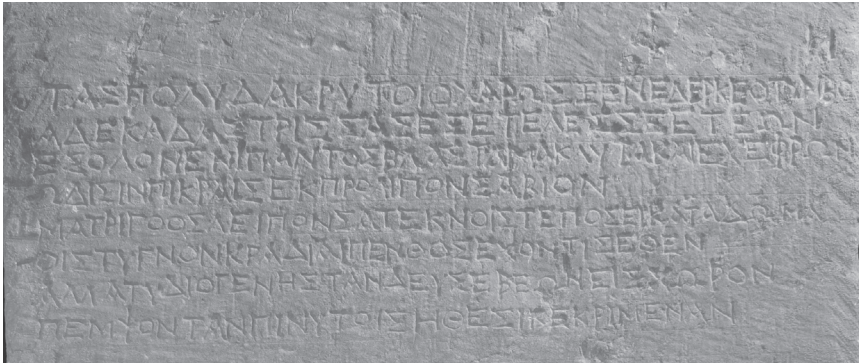 Η
ΤΑΣΠΟΛΥΔΑΚΡΥΤΟΙΟΧΑΡΩΣΞΕΝΕΔΕΡΚΕΟΤΥΝΒΟ
ΑΔΕΚΑΔΑΣΤΡΙΣΣΑΣΕΞΕΤΕΛΕΥΣΣΕΤΕΩΝ
ΕΣΘΛΟΝΕΝΙΠΑΝΤΟΣΒΛΑΣΤΑΜΑΚΛΥΤΑΚΑΙΕΧΕΦΡΩΝ
ΩΔΙΣΙΝΠΙΚΡΑΙΣΕΚΠΡΟΛΙΠΟΝΣΑΒΙΟΝ
ΜΑΤΡΙΓΟΟΣΛΕΙΠΟΝΣΑΤΕΚΝΟΙΣΤΕΠΟΣΕΙΚΑΤΑΔΩΜΑ
ΟΙΣΤΥΓΝΟΝΚΡΑΔΙΑΙΠΕΝΘΟΣΕΧΟΝΤΙΣΕΘΕΝ
ΑΛΛΑΤΥΔΙΟΓΕΝΗΣΤΑΝΔΕΥΣΕΒΕΩΝΕΙΣΧΩΡΟΝ
ΠΕΜΨΟΝΤΑΝΠΙΝΥΤΟΙΣΗΘΕΣΙΚΕΚΡΙΜΕΝΑΝ